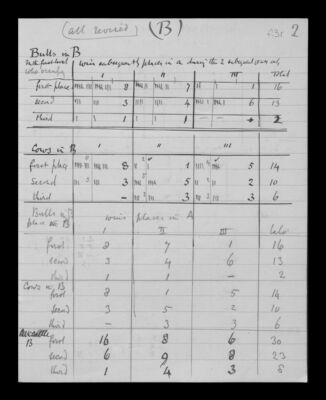 (all revised) (B) 2
Bulls in B
who win subsequently places in A during the 2 subsequent
I II III Total
first place 8 7 1 16
second 3 4 6 13
third 1 1 — 2
Cows in B
I II III
first place 8 1 5 14
second 3 5 2 10
third — 3 3 6
Bulls in B win places in A
place in B I II III
first 8 7 1 16
second 3 4 6 13
third 1 1 — 2
Cows in B
first 8 1 5 14
second 3 5 2 10
third — 3 3 6
B first 16 8 6 30
second 6 9 8 23
third 1 4 3 8